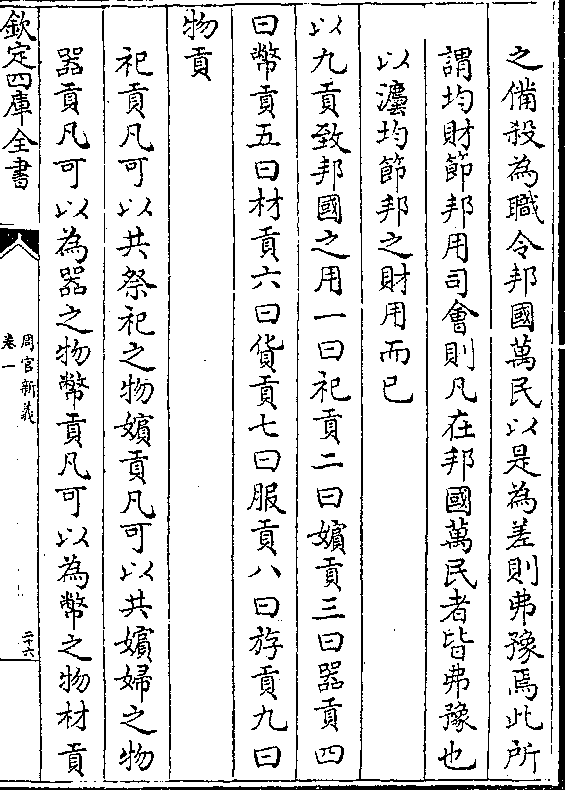 之備殺為職令邦國萬民以是為差則弗豫焉此所
謂均財節邦用司會則凡在邦國萬民者皆弗豫也
以灋均節邦之財用而已
以九貢致邦國之用一曰祀貢二曰嬪貢三曰器貢四
曰幣貢五曰材貢六曰貨貢七曰服貢八曰斿貢九曰
物貢
祀貢凡可以共祭祀之物嬪貢凡可以共嬪婦之物
器貢凡可以為器之物幣貢凡可以為幣之物材貢
欽定四庫全書
周官新義
卷一
二十六